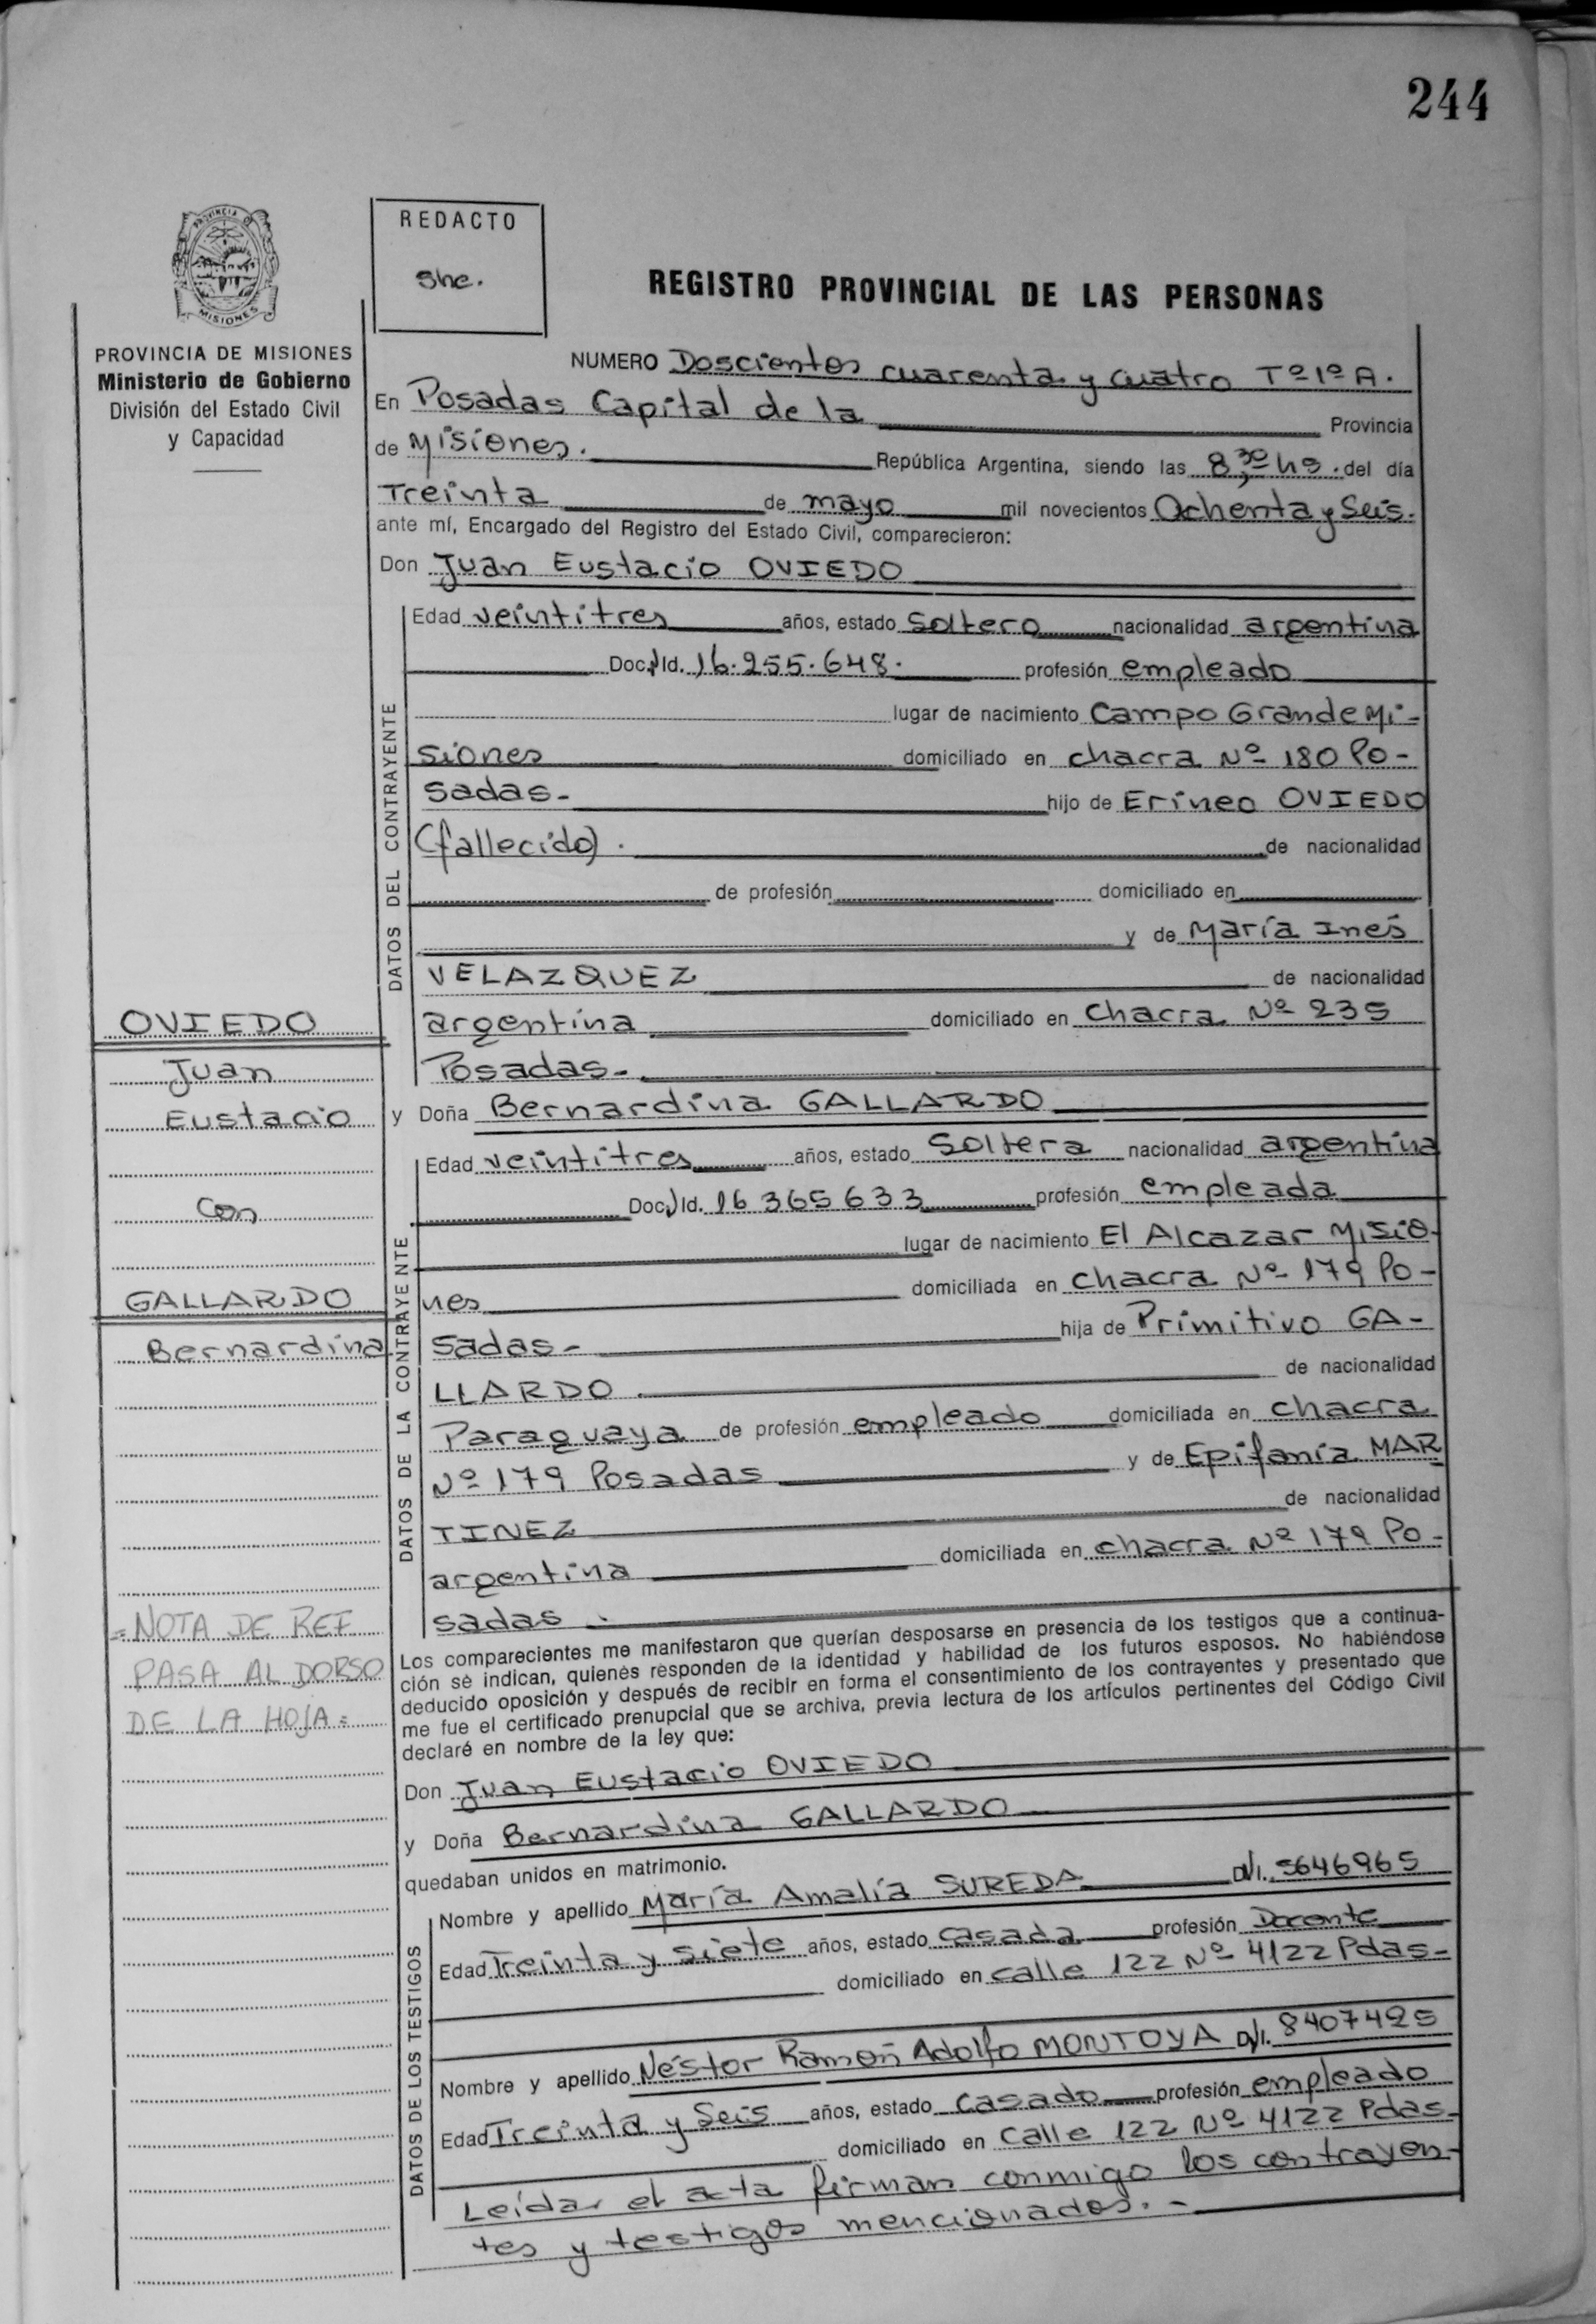 244
PROVINCIA DE
MISIONES
REDACTO
She.
REGISTRO PROVINCIAL DE LAS PERSONAS
PROVINCIA DE MISIONES
Ministerio de Gobierno
División del Estado Civil
y Capacidad
NUMERO Doscientos cuarenta y cuatro Tº 1º A.
En Posadas Capital de la Provincia
de Misiones. República Argentina, siendo las 8,30 hs. del día
Treinta de mayo mil novecientos Ochenta y Seis.
ante mí, Encargado del Registro del Estado Civil, comparecieron:
Don Juan Eustacio OVIEDO
DATOS DEL CONTRAYENTE
Edad veintitres años, estado Soltero nacionalidad argentina
Doc. Id. 16.255.648. profesión empleado
lugar de nacimiento Campo Grande Mi-
siones domiciliado en chacra Nº 180 Po-
sadas- hijo de Erineo OVIEDO
(fallecido). de nacionalidad
de profesión domiciliado en
y de María Inés
VELAZQUEZ de nacionalidad
argentina domiciliado en Chacra Nº 235
Posadas-
OVIEDO
Juan
Eustacio
Con
GALLARDO
Bernardina
=NOTA DE REF
PASA AL DORSO
DE LA HOJA=
y Doña Bernardina GALLARDO
DATOS DE LA CONTRAYENTE
Edad veintitres años, estado Soltera nacionalidad argentina
Doc. Id. 16 365 633 profesión empleada
lugar de nacimiento El Alcazar Misio-
nes domiciliada en chacra Nº 179 Po-
sadas- hija de Primitivo GA-
LLARDO. de nacionalidad
Paraguaya de profesión empleado domiciliada en chacra
Nº 179 Posadas y de Epifania MAR
TINEZ de nacionalidad
argentina domiciliada en chacra Nº 179 Po-
sadas.
Los comparecientes me manifestaron que querían desposarse en presencia de los testigos que a continua-
ción sé indican, quienés responden de la identidad y habilidad de los futuros esposos. No habiéndose
deducido oposición y después de recibir en forma el consentimiento de los contrayentes y presentado que
me fue el certificado prenupcial que se archiva, previa lectura de los artículos pertinentes del Código Civil
declaré en nombre de la ley que:
Don Juan Eustacio OVIEDO
y Doña Bernardina GALLARDO
quedaban unidos en matrimonio.
DATOS DE LOS TESTIGOS
Nombre y apellido María Amalia SUREDA D/I. 5646965
Edad Treinta y siete años, estado casada profesión Docente
domiciliado en calle 122 Nº 4122 Pdas-
Nombre y apellido Néstor Ramón Adolfo MONTOYA D/I. 8407425
Edad Treinta y Seis años, estado casado profesión empleado
domiciliado en calle 122 Nº 4122 Pdas-
Leída el acta firman conmigo los contrayen-
tes y testigos mencionados.-